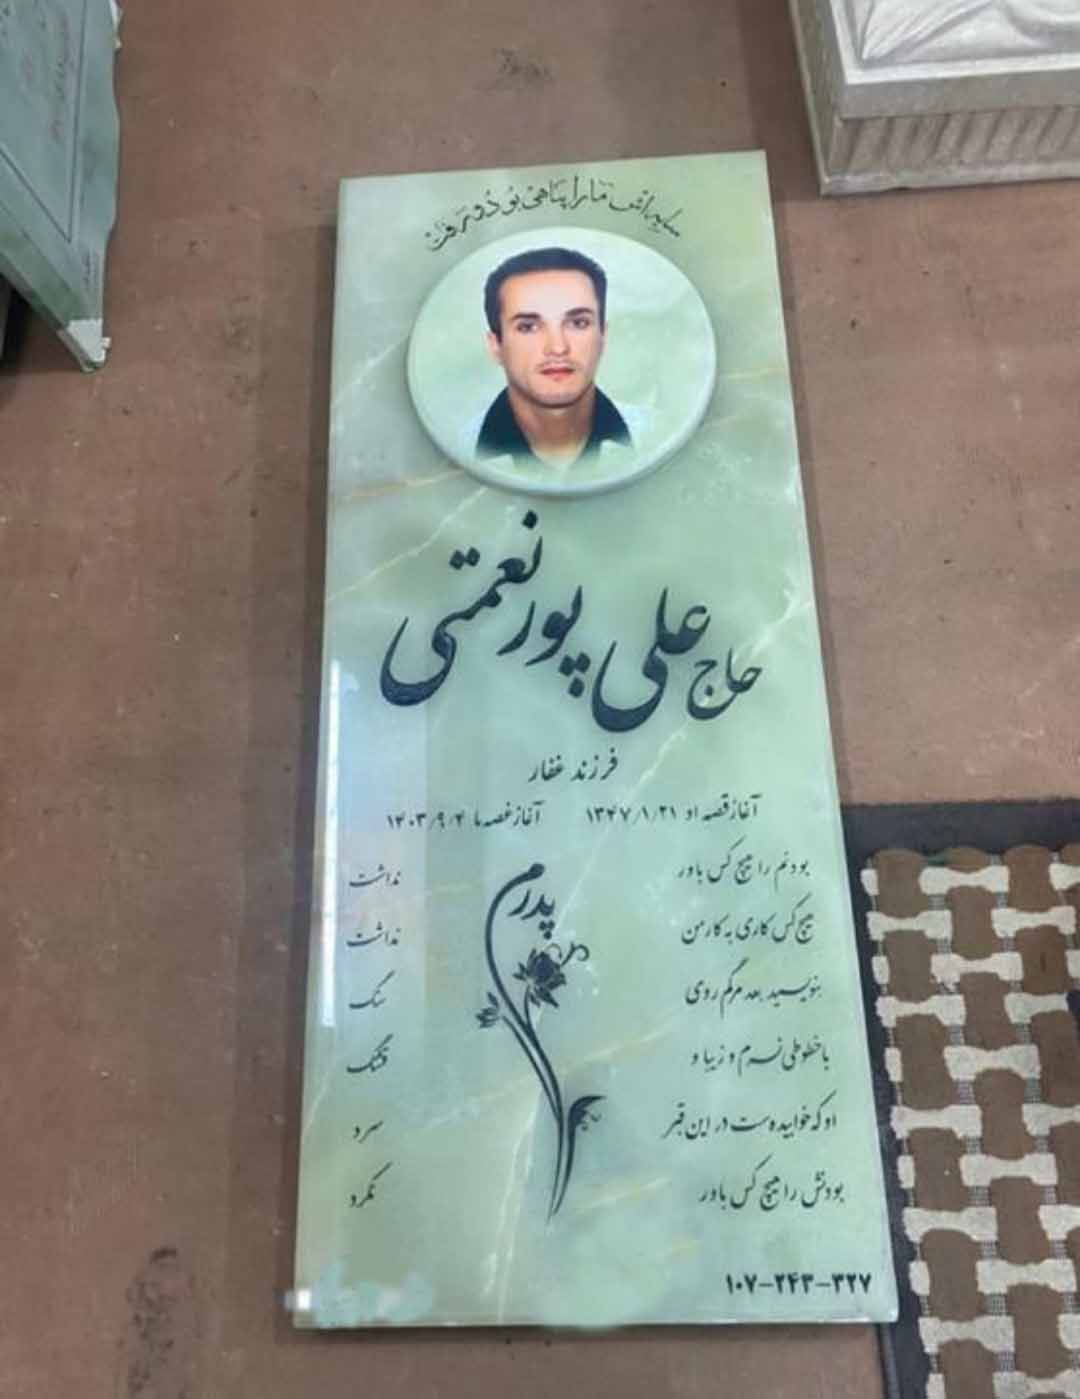 سایه اش ما را پناهی بود و رفت
حاج علی پورنعمتی
فرزند غفار
آغاز قصه او ۱۳۴۷/۱/۲۱ آغاز غصه ما ۱۴۰۳/۹/۴
پدرم
بودنم را هیچ کس باور نداشت
هیچ کس کاری به کار من نداشت
بنویسید بعد مرگم روی سنگ
با خطوطی نرم و زیبا و قشنگ
او که خوابیده ست در این قبر سرد
بودنش را هیچ کس باور نکرد
۱۰۷-۲۴۳-۳۲۷